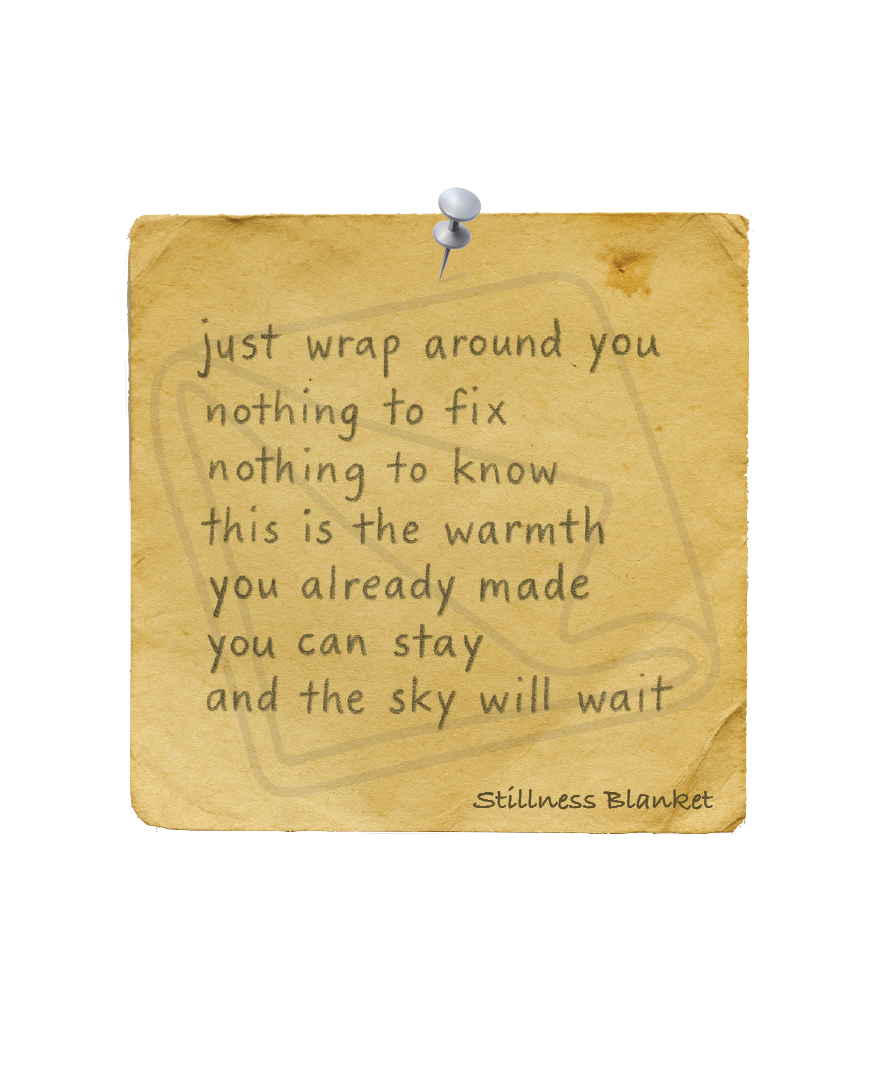 just wrap around you
nothing to fix
nothing to know
this is the warmth
you already made
you can stay
and the sky will wait
Stillness Blanket